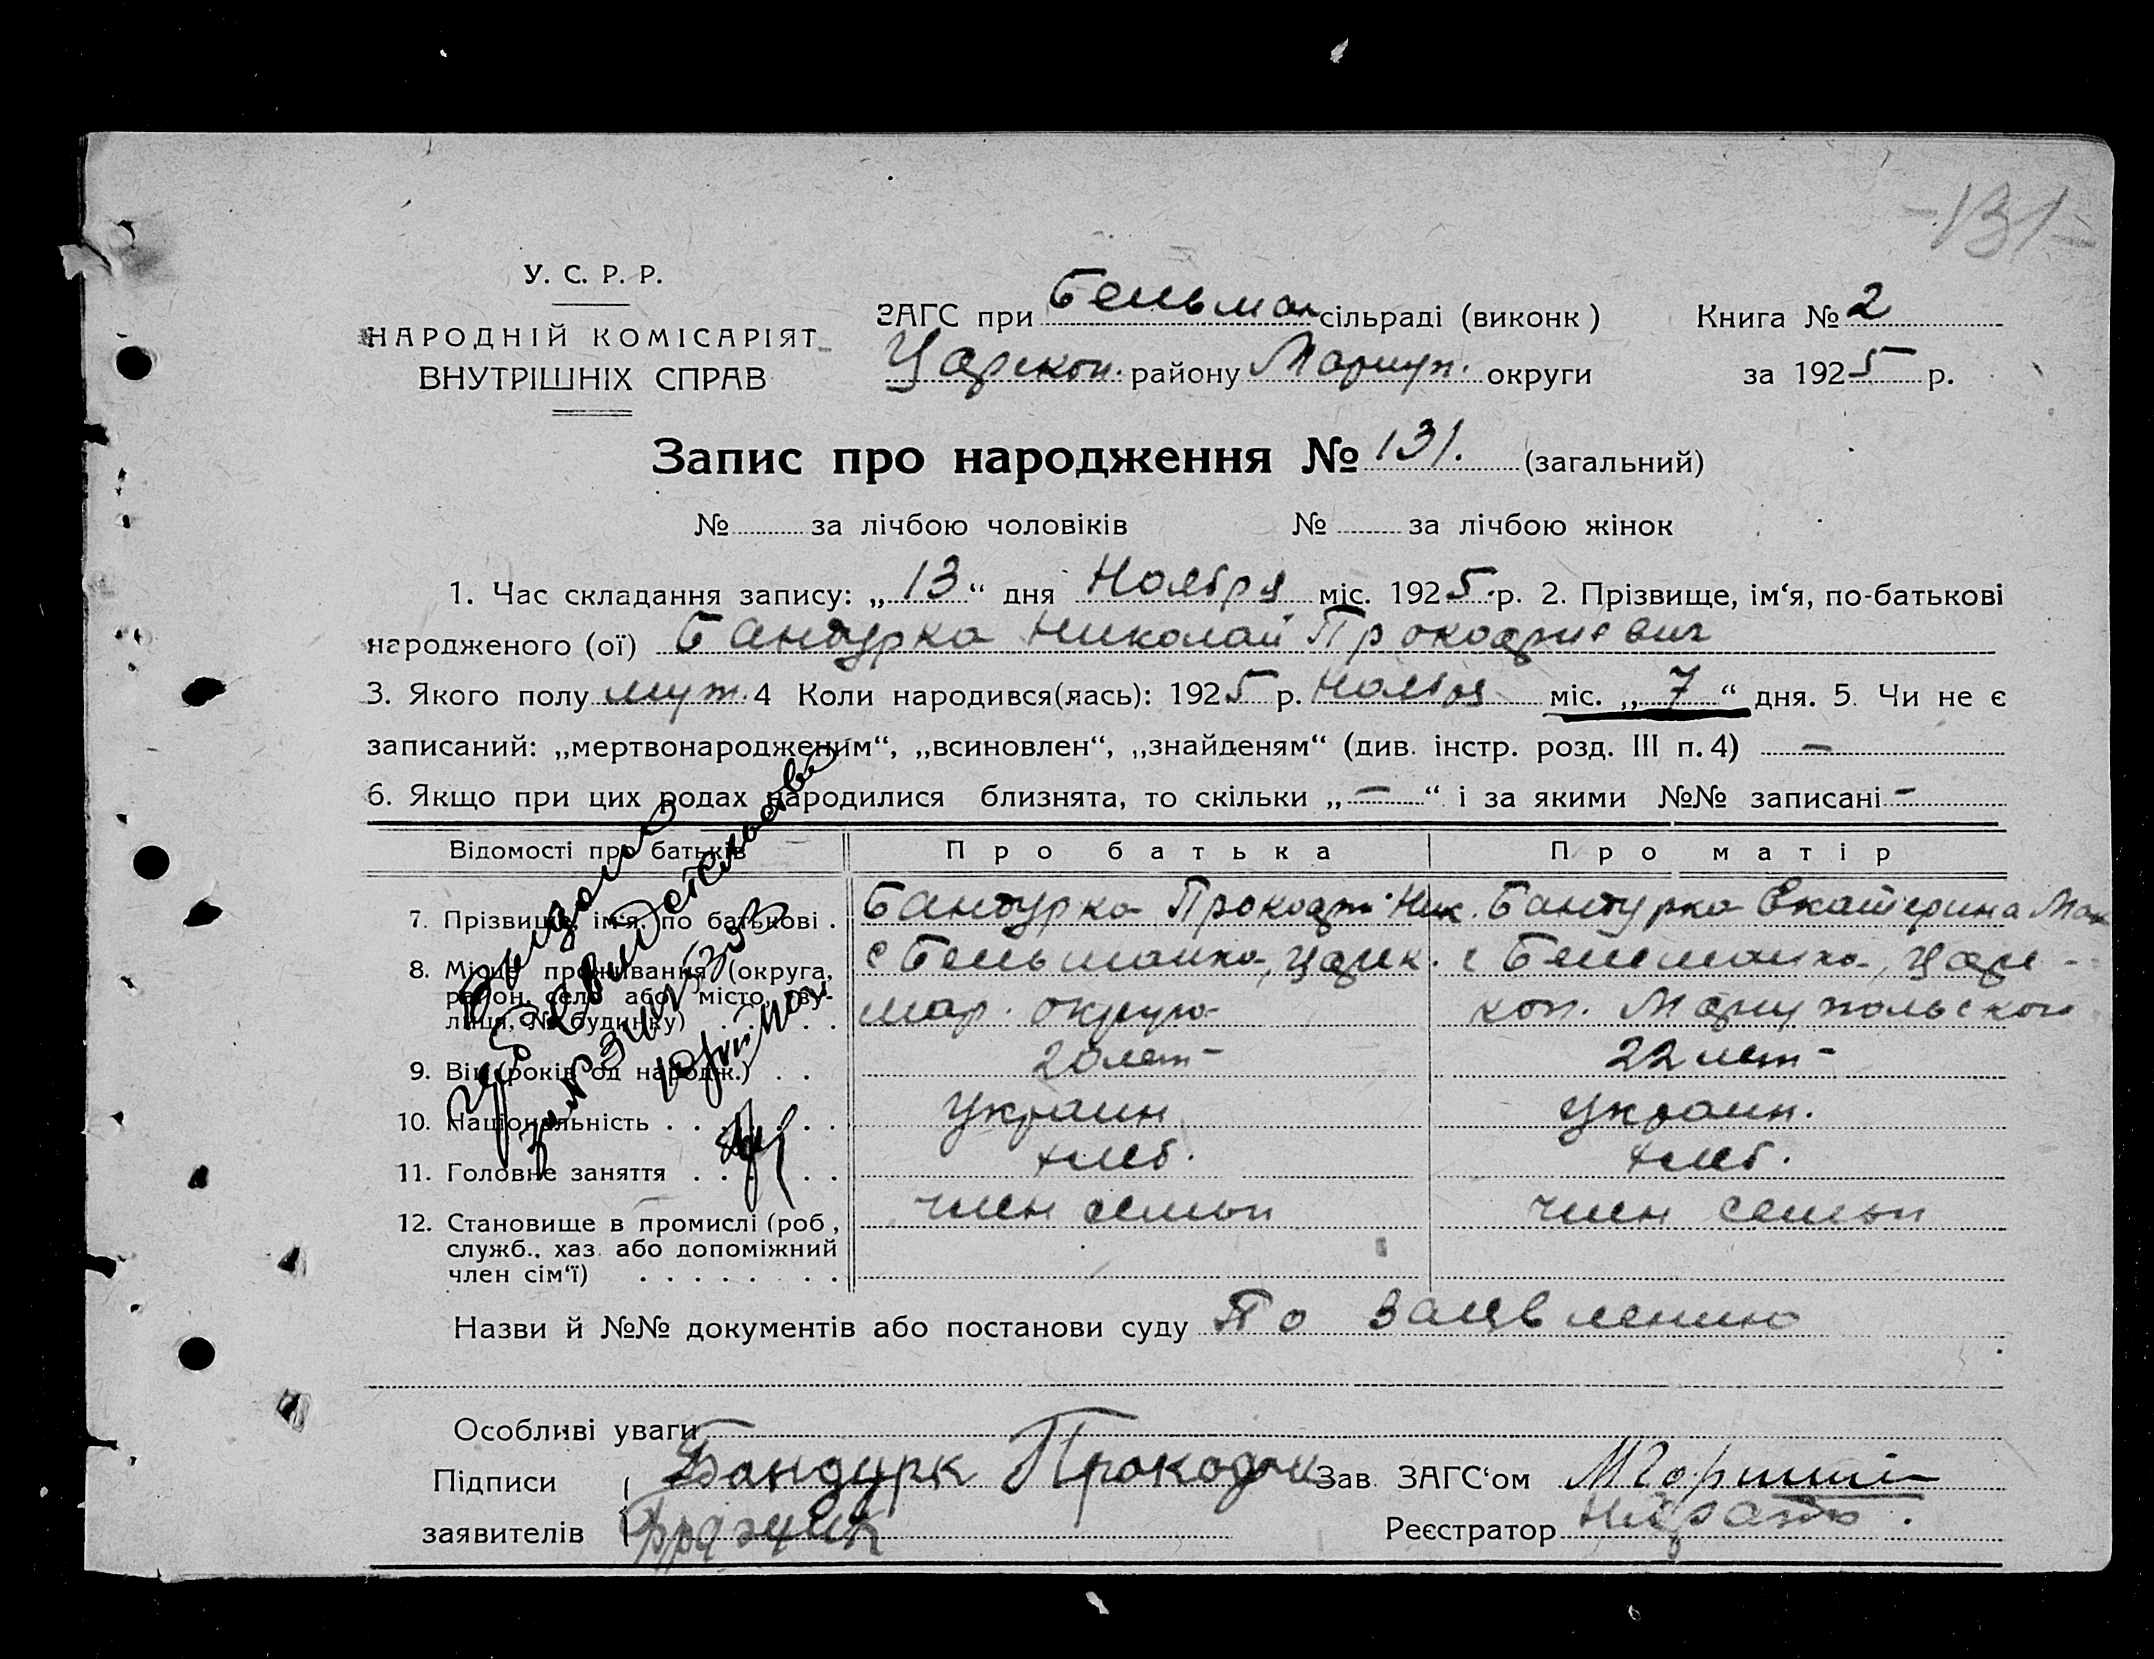 -131-
У. С. Р. Р.
НАРОДНІЙ КОМІСАРІЯТ
ВНУТРІШНІХ СПРАВ
ЗАГС при Бельман сільраді (виконк) Книга № 2
Царекон. району Мариуп. округи за 1925 р.
Запис про народження № 131. (загальний)
№ за лічбою чоловіків № за лічбою жінок
1. Час складання запису: „13“ дня Ноября міс. 1925 р. 2. Прізвище, ім‘я, по-батькові
народженого (ої) Бандурка Николай Прокофиевич
3. Якого полу муж. 4 Коли народився(лась): 1925 р. Ноября міс. „7“ дня. 5. Чи не є
записаний: „мертвонародженим“, „всиновлен“, „знайденям“ (див. інстр. розд. III п. 4) —
6. Якщо при цих родах народилися близнята, то скільки „—“ і за якими №№ записані —
Відомості про батьків Про батька Про матір
7. Прізвище, ім‘я, по батькові . Бандурка Прокофи Ник. Бандурка Екатерина Мак
8. Місце проживання (округа, с Бельманка, Царек. с Бельманка, Царе-
район, село або місто, ву- мар. округа кон. Мариупольской
лиця, № будинку) . . . .
9. Вік (років од народж.) . . 20 лет 22 лет
10. Національність . . . . . . Украин Украин.
11. Головне заняття . . . . . хлеб. хлеб.
12. Становище в промислі (роб, член семьи член семьи
служб., хаз. або допоміжний
член сім‘ї) . . . . . . . .
Выдано
свидетельство
за №
Назви й №№ документів або постанови суду По заявлению
Особливі уваги
Підписи Бандурк Прокофи Зав. ЗАГС‘ом
заявителів Реєстратор